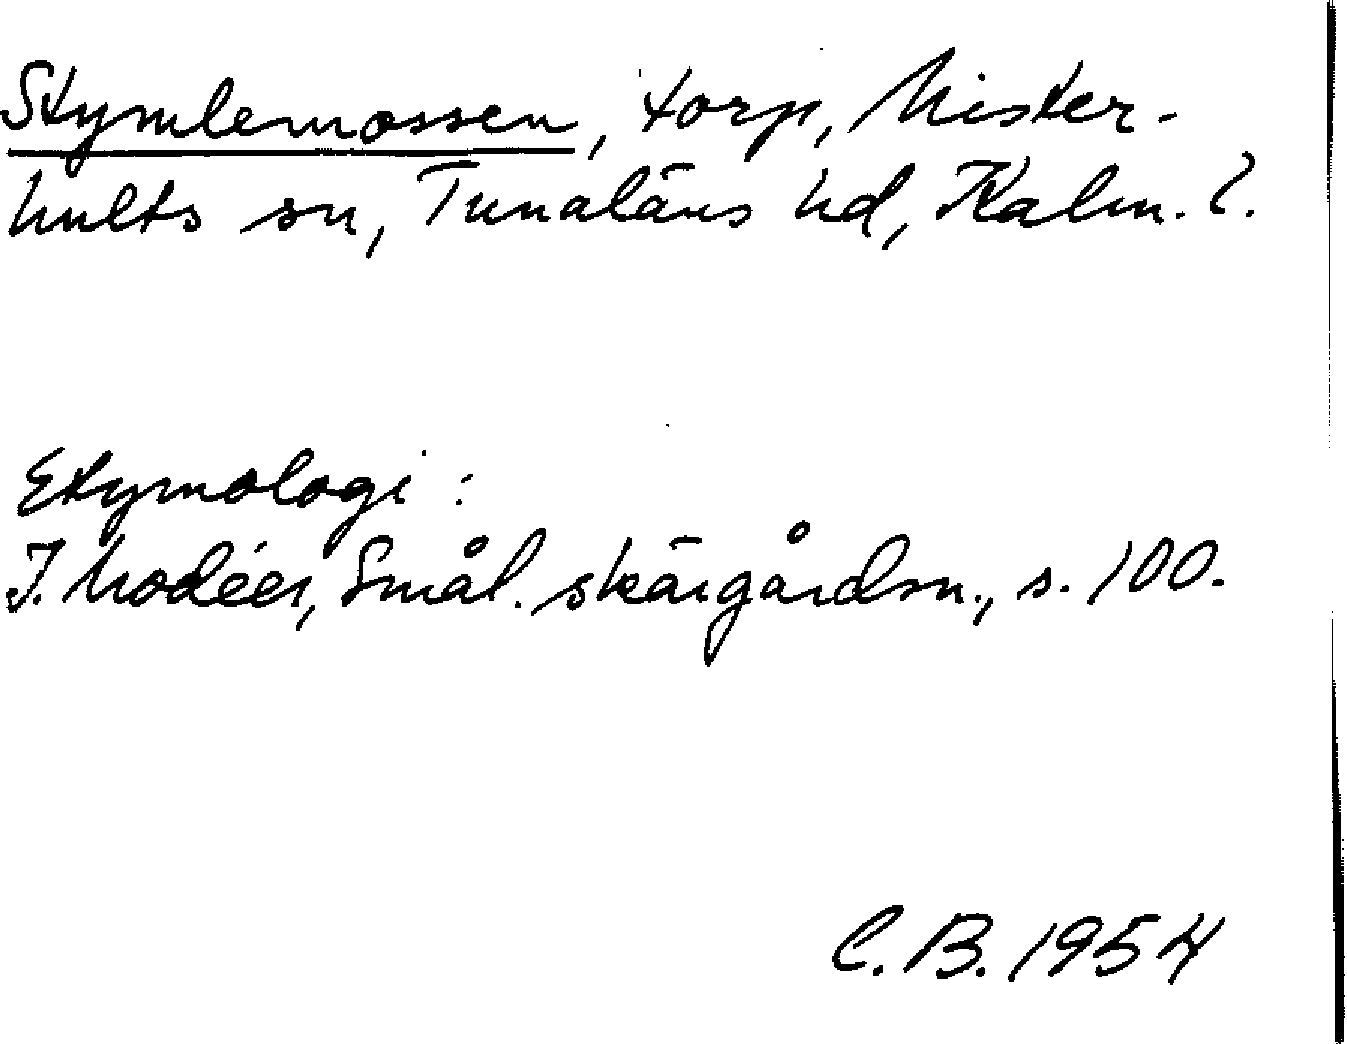 Stymlemossen, torp, Mister-
hults sn, Tunaläns hd, Kalm. l.
Etymologi:
I. Modéer, Smål. skärgårdsn., s. 100.
C.B. 1954